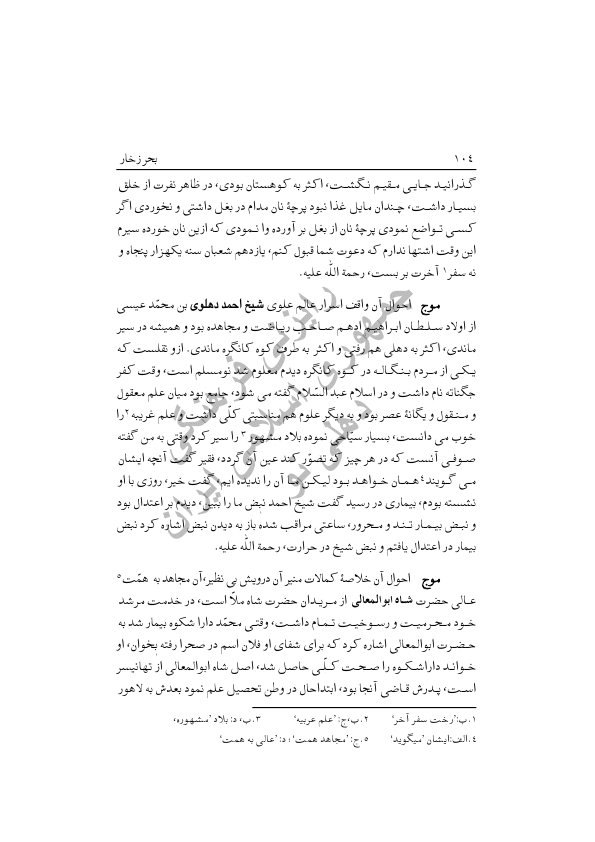 ۱۰۴ بحر زخار
گذرانید جایی مقیم نگشت، اکثر به کوهستان بودی، در ظاهر نفرت از خلق
بسیار داشت، چندان مایل غذا نبود پرچهٔ نان مدام در بغل داشتی و نخوردی اگر
کسی تواضع نمودی پرچهٔ نان از بغل بر آورده وا نمودی که ازین نان خورده سیرم
این وقت اشتها ندارم که دعوت شما قبول کنم، یازدهم شعبان سنه یکهزار پنجاه و
نه سفر۱ آخرت بر بست، رحمة الله علیه.
موج احوال آن واقف اسرار عالم علوی شیخ احمد دهلوی بن محمّد عیسی
از اولاد سلطان ابراهیم ادهم صاحب ریاضت و مجاهده بود و همیشه در سیر
ماندی، اکثر به دهلی هم رفتی و اکثر به طرف کوه کانگره ماندی. ازو نقلست که
یکی از مردم بنگاله در کوه کانگره دیدم معلوم شد نومسلم است، وقت کفر
جگناته نام داشت و در اسلام عبد السّلام گفته می شود، جامع بود میان علم معقول
و منقول و یگانهٔ عصر بود و به دیگر علوم هم مناسبتی کلّی داشت و علم غریبه۲ را
خوب می دانست، بسیار سیّاحی نموده بلاد مشهور۳ را سیر کرد وقتی به من گفته
صوفی آنست که در هر چیز که تصوّر کند عین آن گردد، فقیر گفت آنچه ایشان
می گویند۴ همان خواهد بود لیکن ما آن را ندیده ایم، گفت خیر، روزی با او
نشسته بودم، بیماری در رسید گفت شیخ احمد نبض ما را ببین، دیدم بر اعتدال بود
و نبض بیمار تند و محرور، ساعتی مراقب شده باز به دیدن نبض اشاره کرد نبض
بیمار در اعتدال یافتم و نبض شیخ در حرارت، رحمة الله علیه.
موج احوال آن خلاصهٔ کمالات منیر آن درویش بی نظیر، آن مجاهد به همّت۵
عالی حضرت شاه ابوالمعالی از مریدان حضرت شاه ملّا است، در خدمت مرشد
خود محرمیت و رسوخیت تمام داشت، وقتی محمّد دارا شکوه بیمار شد به
حضرت ابوالمعالی اشاره کرد که برای شفای او فلان اسم در صحرا رفته بخوان، او
خواند داراشکوه را صحت کلّی حاصل شد، اصل شاه ابوالمعالی از تهانیسر
است، پدرش قاضی آنجا بود، ابتداحال در وطن تحصیل علم نمود بعدش به لاهور
۱.ب:’رخت سفر آخر‘ ۲.ب،ج: ’علم عربیه‘ ۳.ب، د: بلاد ’مشهوره،
۴.الف:ایشان ’میگوید‘ ۵.ج: ’مجاهد همت‘ ؛ د: ’عالی به همت‘
رایزنی فرهنگی
جمهوری اسلامی ایران
دهلی نو